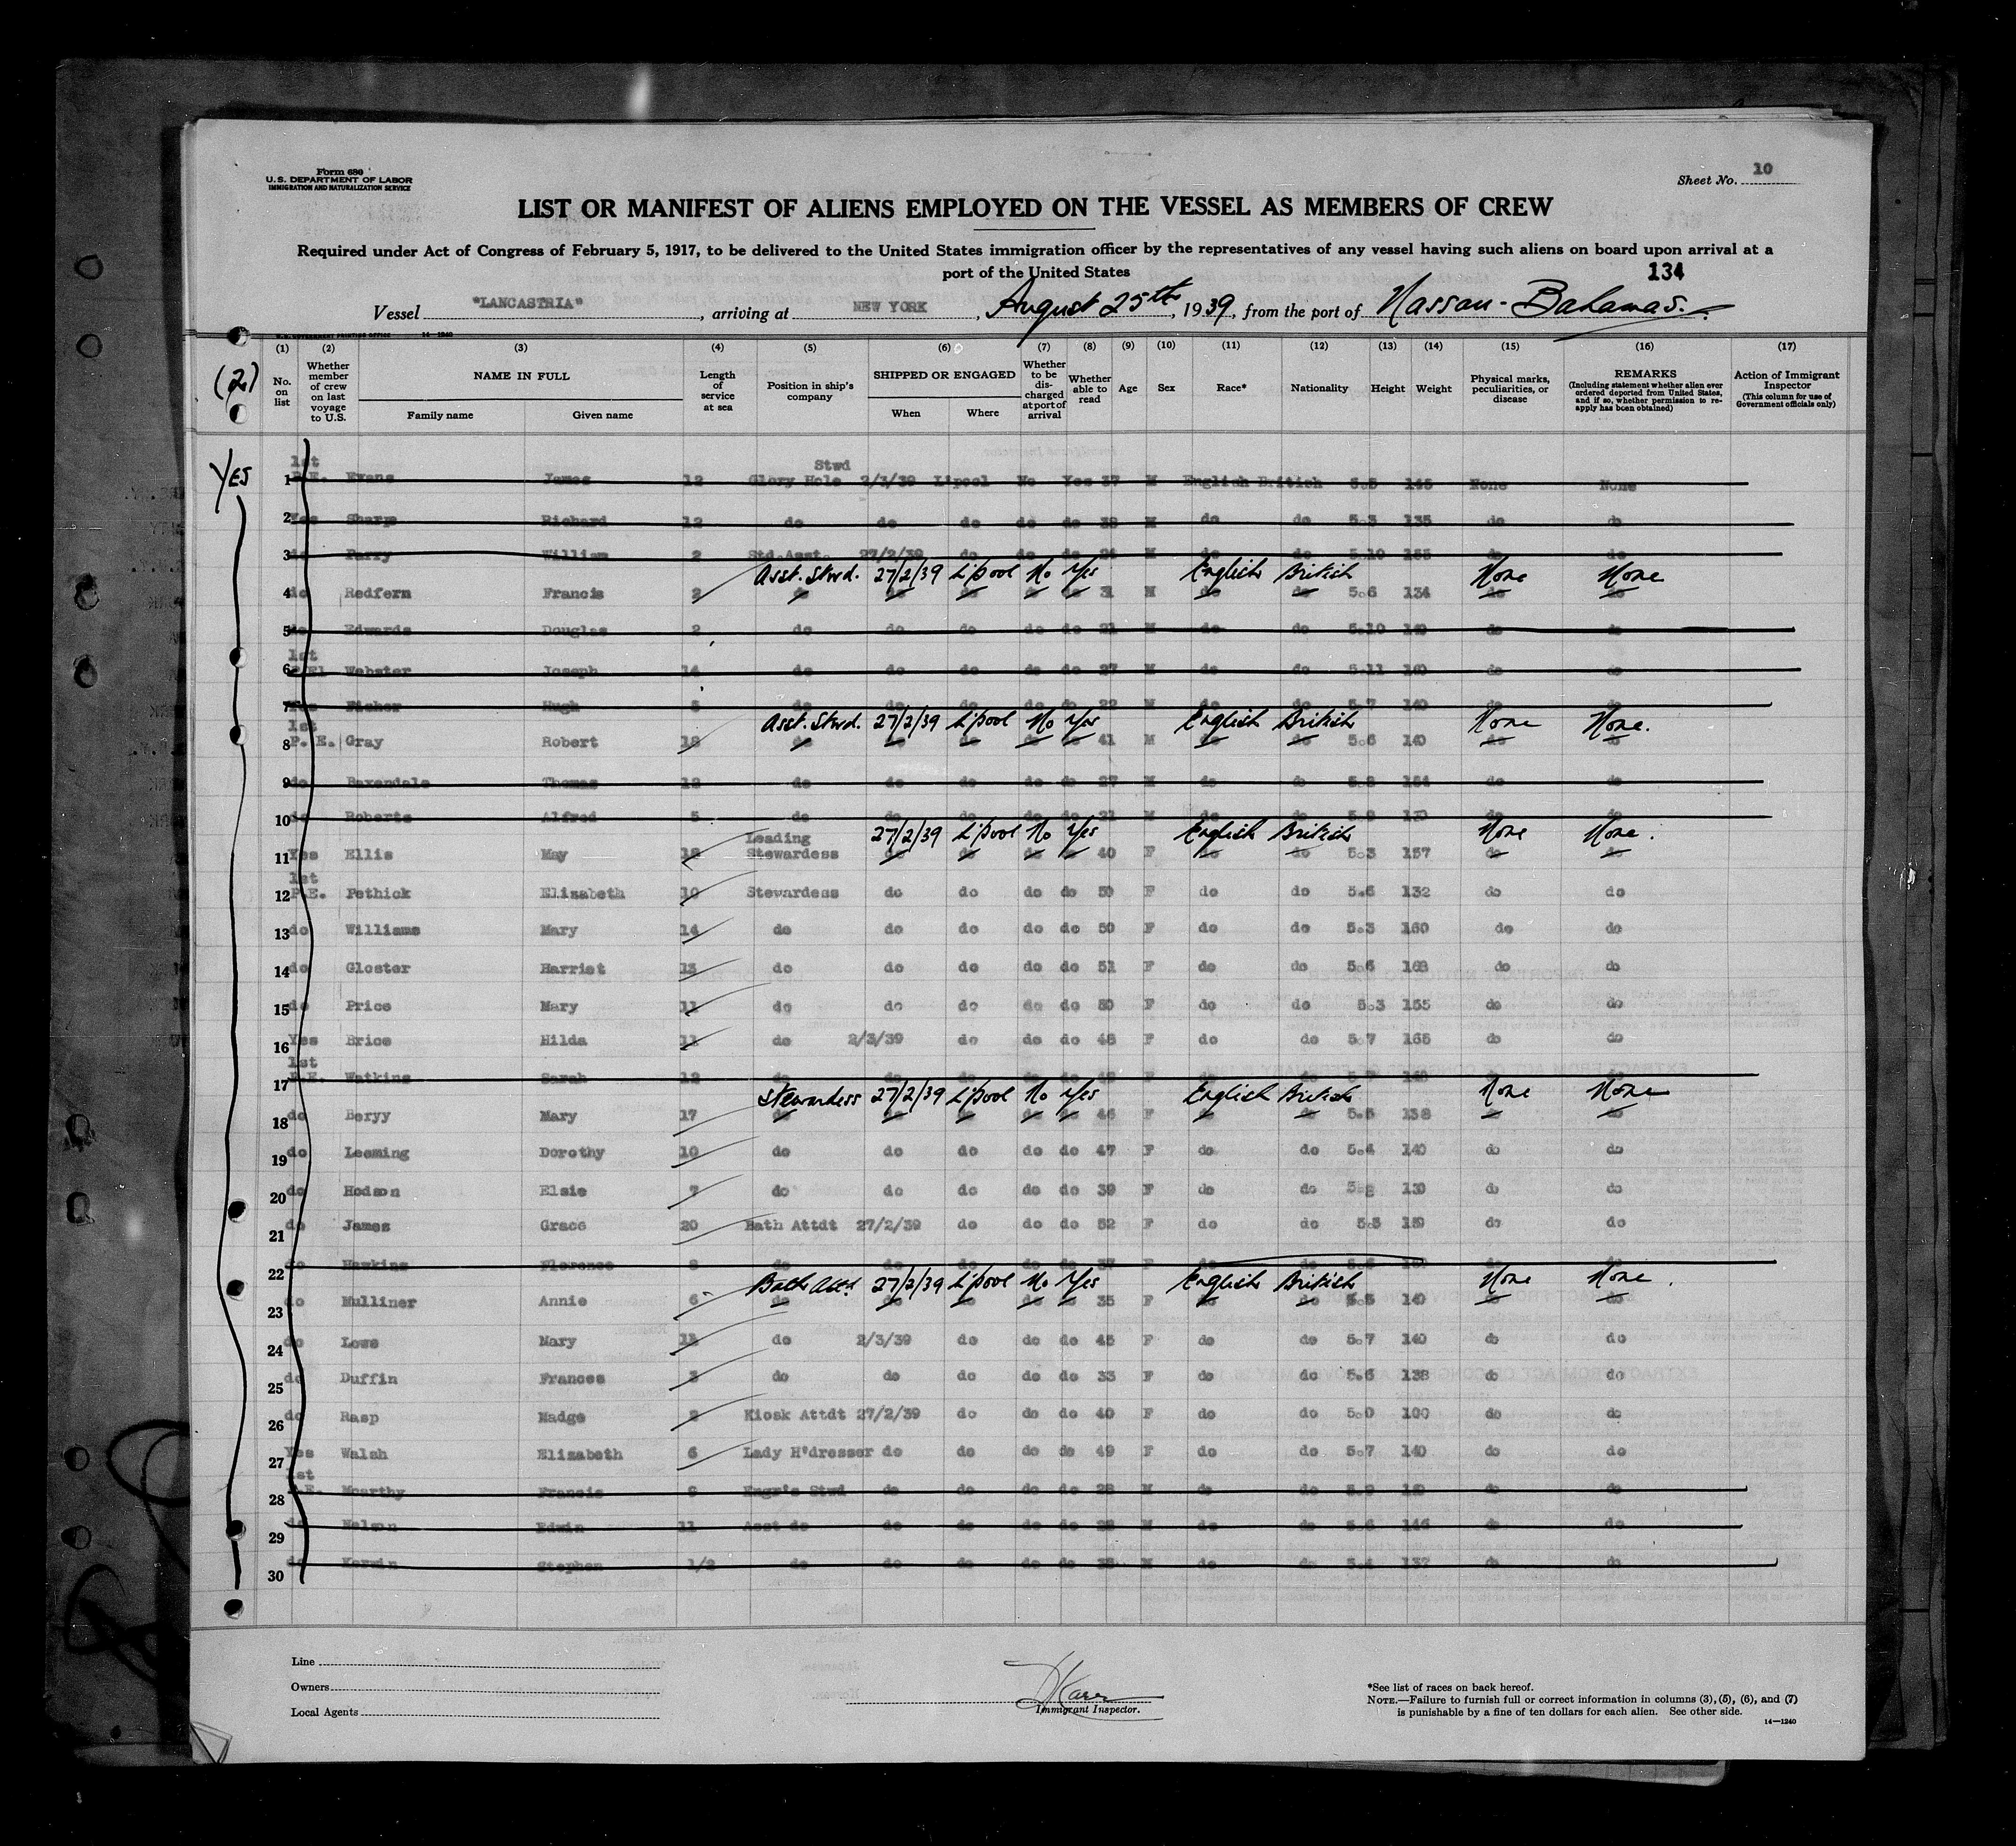 Form 680
U.S. DEPARTMENT OF LABOR
IMMIGRATION AND NATURALIZATION SERVICE
Sheet No. 10
LIST OR MANIFEST OF ALIENS EMPLOYED ON THE VESSEL AS MEMBERS OF CREW
Required under Act of Congress of February 5, 1917, to be delivered to the United States immigration officer by the representatives of any vessel having such aliens on board upon arrival at a
port of the United States
134
Vessel "LANCASTRIA", arriving at NEW YORK, August 25th, 1939, from the port of Nassau - Bahamas.
U.S. GOVERNMENT PRINTING OFFICE 14-1240
(1) (2) (3) (4) (5) (6) (7) (8) (9) (10) (11) (12) (13) (14) (15) (16) (17)
(2) No. on list Whether member of crew on last voyage to U.S. NAME IN FULL Family name Given name Length of service at sea Position in ship's company SHIPPED OR ENGAGED When Where Whether to be discharged at port of arrival Whether able to read Age Sex Race* Nationality Height Weight Physical marks, peculiarities, or disease REMARKS (Including statement whether alien ever ordered deported from United States, and if so, whether permission to reapply has been obtained) Action of Immigrant Inspector (This column for use of Government officials only)
YES
1st Stwd
1 P.E. Evans James 12 Glory Hole 2/3/39 Lipool No Yes 37 M English British 5.5 145 None None
2 Yes Sharp Richard 12 do do do do do 38 M do do 5.3 135 do do
3 do Parry William 2 Std.Asst. 27/2/39 do do do 24 M do do 5.10 155 do do
Asst. Stwd. 27/2/39 L'pool No Yes English British None None
4 do Redfern Francis 2 do do do do do 31 M do do 5.6 134 do do
5 do Edwards Douglas 2 do do do do do 21 M do do 5.10 140 do do
1st
6 P.E. Webster Joseph 14 do do do do do 27 M do do 5.11 160 do do
7 Yes Fisher Hugh 5 do do do do do 22 M do do 5.7 140 do do
1st Asst. Stwd. 27/2/39 L'pool No Yes English British None None.
8 P.E. Gray Robert 18 do do do do do 41 M do do 5.6 140 do do
9 do Baxendale Thomas 12 do do do do do 27 M do do 5.8 154 do do
10 do Roberts Alfred 5 do do do do do 21 M do do 5.8 130 do do
Leading 27/2/39 L'pool No Yes English British None None.
11 Yes Ellis May 18 Stewardess do do do do 40 F do do 5.3 157 do do
1st
12 P.E. Pethick Elizabeth 10 Stewardess do do do do 50 F do do 5.6 132 do do
13 do Williams Mary 14 do do do do do 50 F do do 5.3 160 do do
14 do Gloster Harriet 13 do do do do do 51 F do do 5.6 168 do do
15 do Price Mary 11 do do do do do 50 F do do 5.3 155 do do
16 Yes Brice Hilda 11 do 2/3/39 do do do 48 F do do 5.7 165 do do
1st
17 P.E. Watkins Sarah 12 do do do do do F do do do do
Stewardess 27/2/39 L'pool No Yes English British None None
18 do Beryy Mary 17 do do do do do 46 F do do 5.5 138 do do
19 do Leeming Dorothy 10 do do do do do 47 F do do 5.4 140 do do
20 do Hodson Elsie 7 do do do do do 39 F do do 130 do do
21 do James Grace 20 Bath Attdt 27/2/39 do do do 52 F do do 5.3 159 do do
22 do Hawkins Florence 8 do do do do do 37 F do do do do
Bath Att. 27/2/39 L'pool No Yes English British None None.
23 do Mulliner Annie 6 do do do do do 35 F do do 5.5 140 do do
24 do Lowe Mary 12 do 2/3/39 do do do 45 F do do 5.7 140 do do
25 do Duffin Frances 3 do do do do do 33 F do do 5.6 138 do do
26 do Rasp Madge 2 Kiosk Attdt 27/2/39 do do do 40 F do do 5.0 100 do do
27 Yes Walsh Elizabeth 6 Lady H'dresser do do do do 49 F do do 5.7 140 do do
1st
28 P.E. Mcarthy Francis Engr's Stwd do do do do 28 M do do 5.9 do do
29 do Nelson Edwin 11 Asst do do do do do 28 M do do 5.6 146 do do
30 do Kerwin Stephen 1/2 do do do do do 38 M do do 5.4 132 do do
Line
Owners
Local Agents
Immigrant Inspector.
*See list of races on back hereof.
NOTE.—Failure to furnish full or correct information in columns (3), (5), (6), and (7)
is punishable by a fine of ten dollars for each alien. See other side.
14—1240